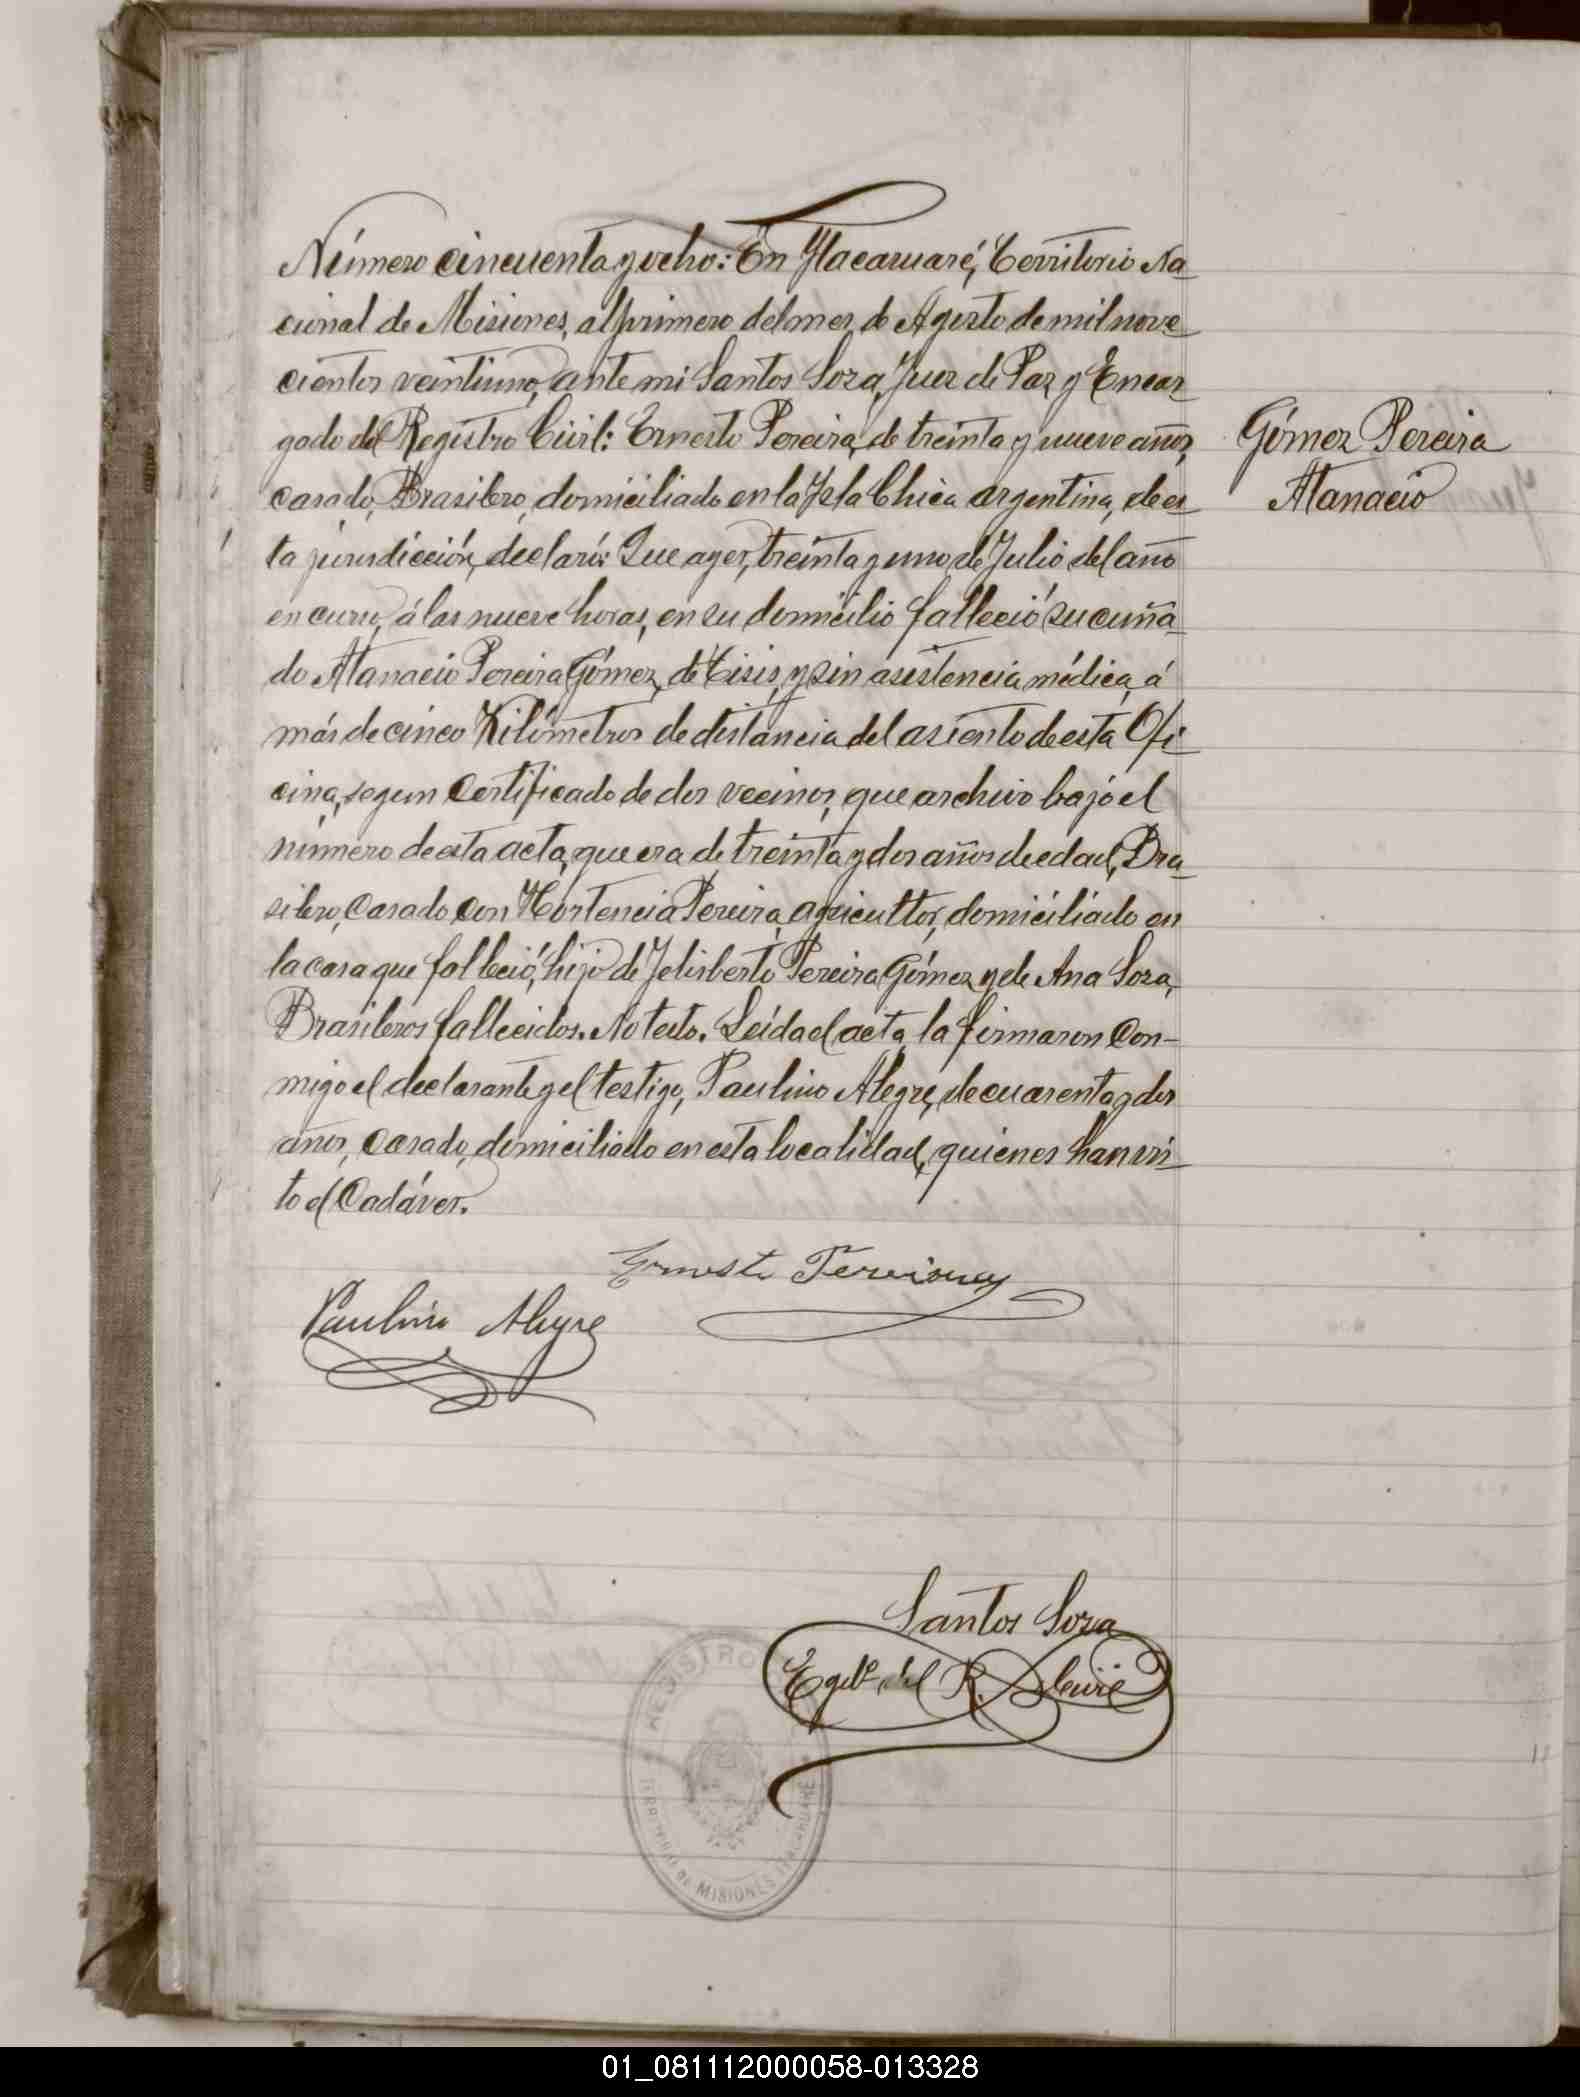 Número cincuenta y ocho: En Ytacaruaré, Territorio Na-
cional de Misiones, al primero del mes de Agosto de mil nove-
cientos veintiuno, ante mi Santos Soza, Juez de Paz y Encar-
gado del Registro Civil: Ernesto Pereira, de treinta y nueve años,
casado, Brasilero, domiciliado en la Isla Chica argentina, de es-
ta jurisdicción, declaró: Que ayer, treinta y uno de Julio del año
en curso, á las nueve horas, en su domicilio falleció su cuña-
do Atanacio Pereira Gómez, de Tisis, y sin asistencia médica, á
más de cinco Kilómetros de distancia del asiento de esta Ofi-
cina, segun Certificado de dos vecinos, que archivo bajo el
número de esta acta, que era de treinta y dos años de edad, Bra-
silero, Casado con Hortencia Pereira, agricultor, domiciliado en
la casa que falleció, hijo de Felisberto Pereira Gómez y de Ana Soza,
Brasileros fallecidos. No testo. Leída el acta, la firmaron Con-
migo el declarante y el testigo, Paulino Alegre, de cuarenta y dos
años, Casado, domiciliado en esta localidad, quienes han vis-
to el Cadáver.
Gómez Pereira
Atanacio
Ernesto Pereira
Paulino Alegre
Santos Soza
Egdo. del R. Civil
REGISTRO
TERRITORIO DE MISIONES ITACARUARÉ
01_081112000058-013328